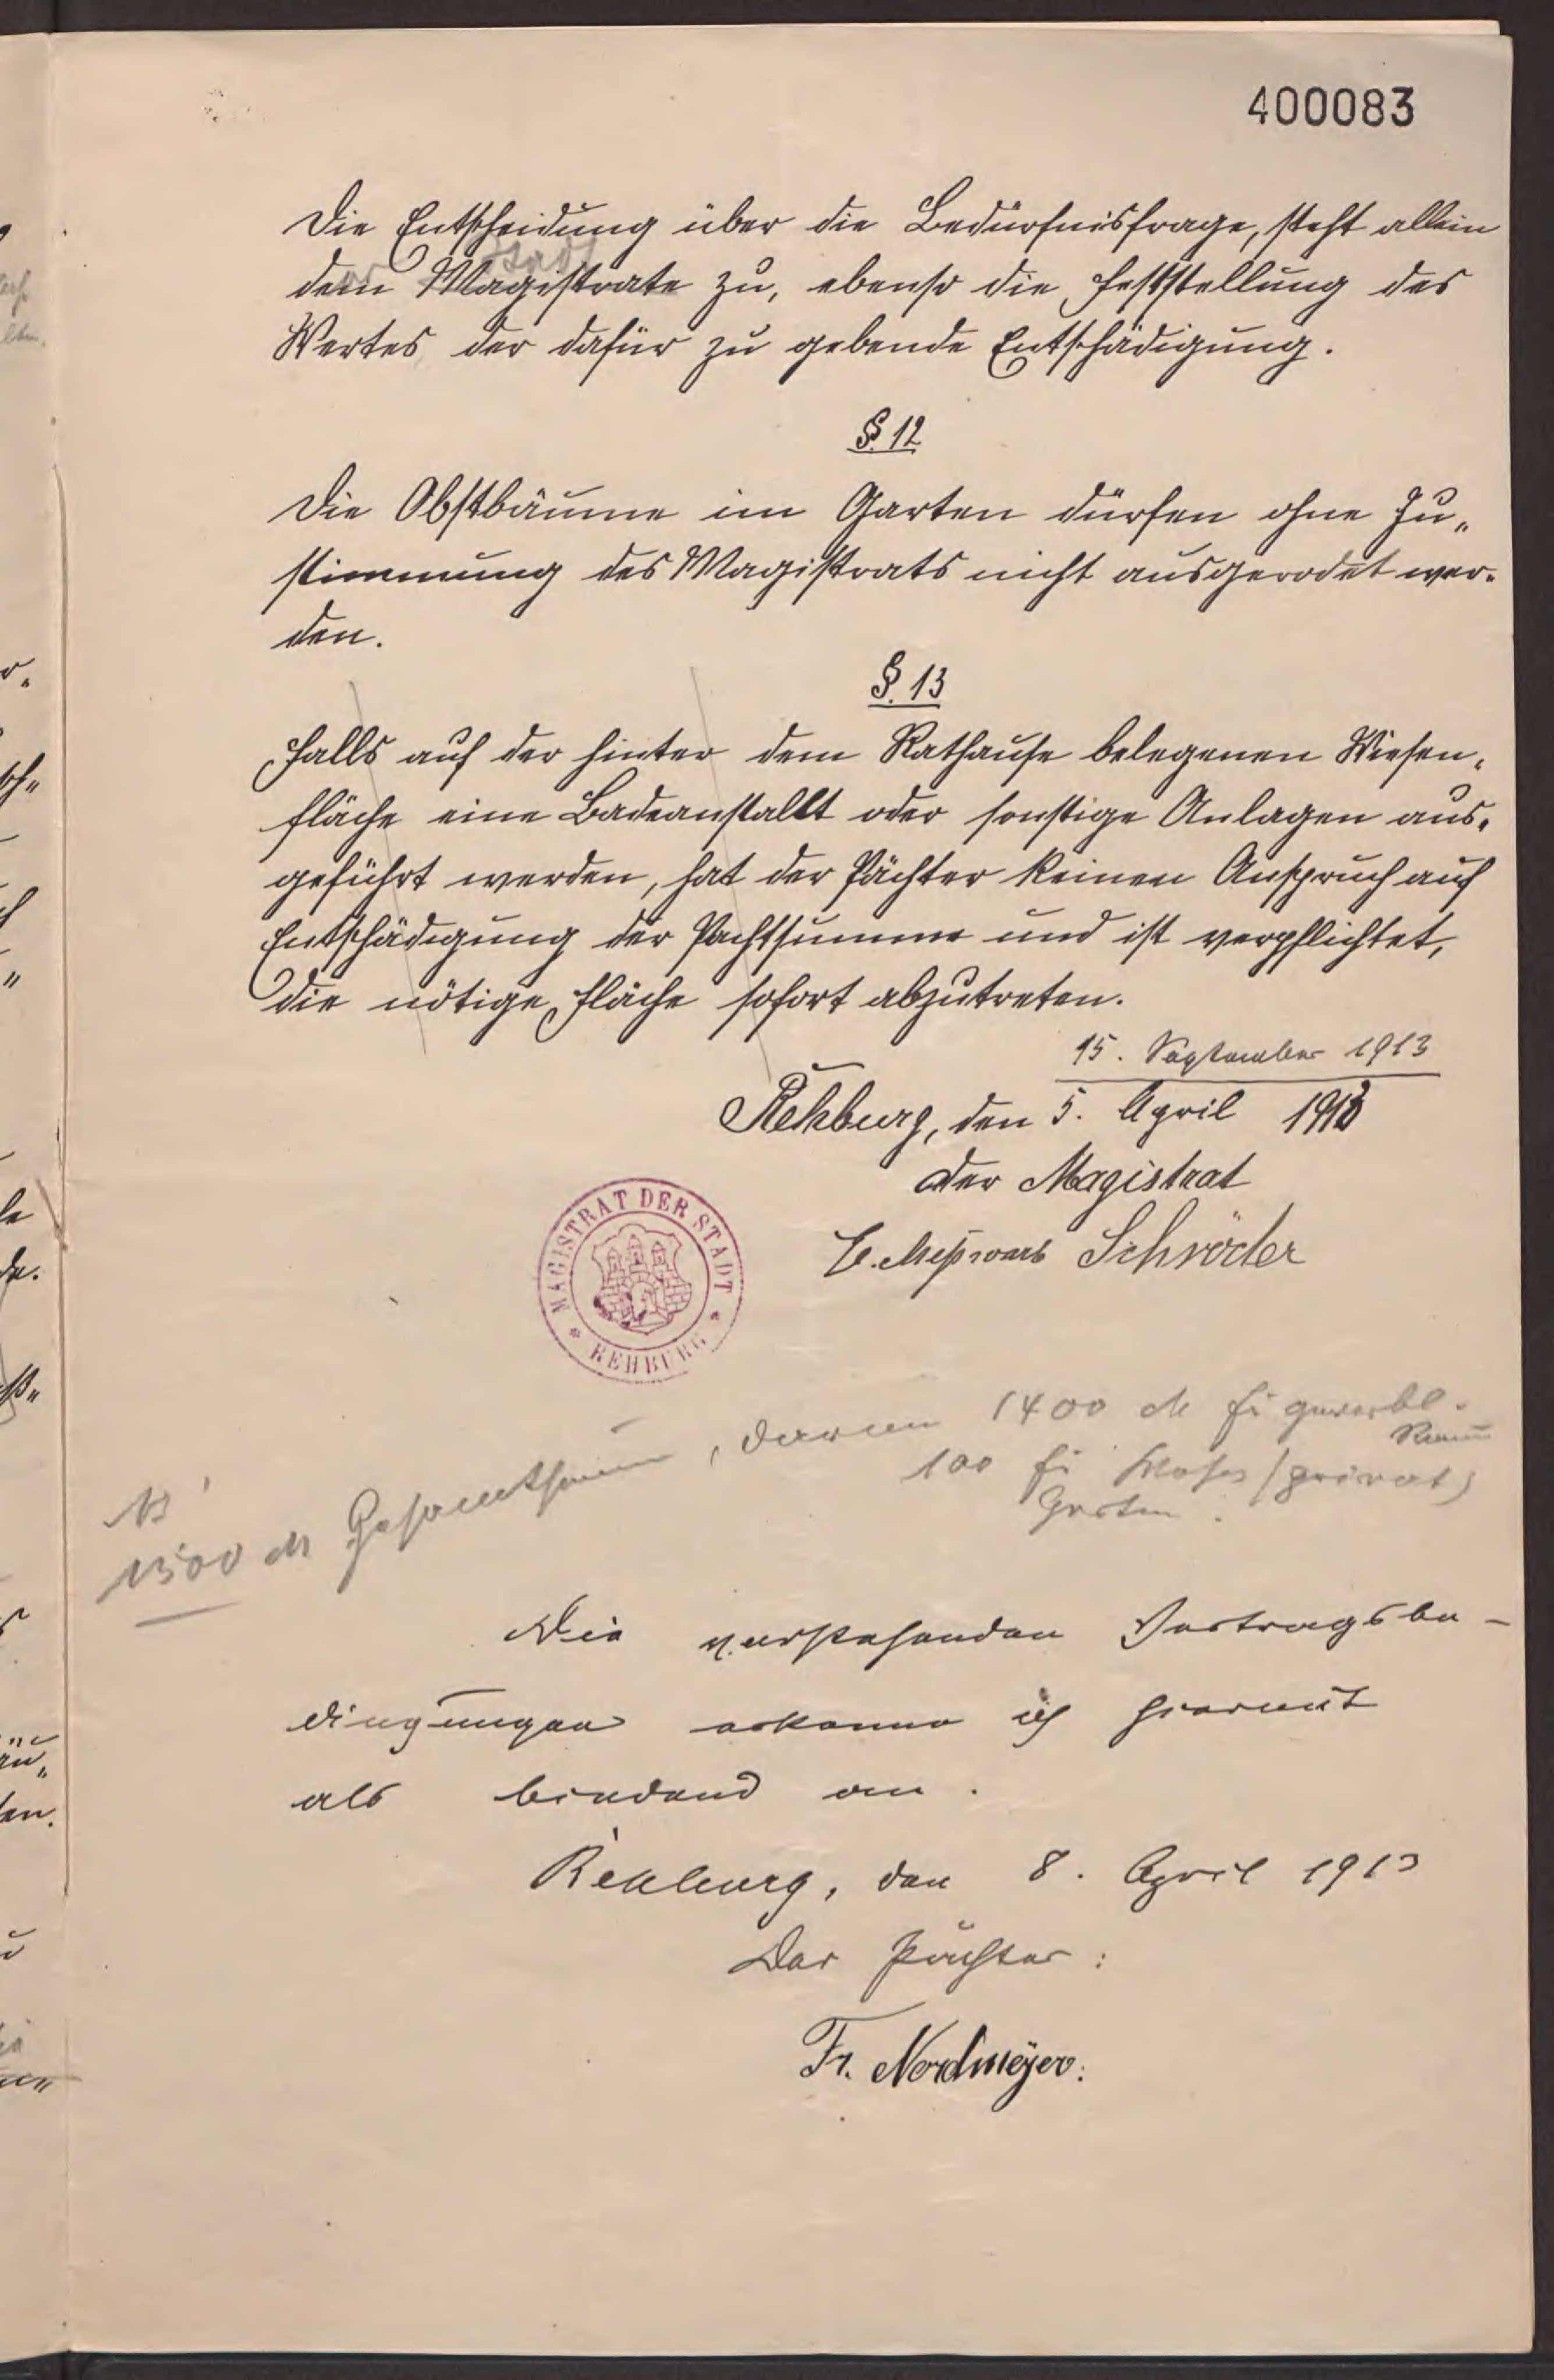 400083
Die Entscheidung über die Bedürfnisfrage, steht allein
Stadt
dem Magistrate zu, ebenso die Feststellung des
Wertes der dafür zu gebende Entschädigung.
§. 12
Die Obstbäume im Garten dürfen ohne Zu„
stimmung des Magistrats nicht ausgerodet wer-
den.
§. 13
Falls auf der hinter dem Rathause belegenen Wiesen„
fläche eine Badeanstallt oder sonstige Anlagen aus„
geführt werden, hat der Pächter keinen Anspruch auf
Entschädigung der Pachtsumme und ist verpflichtet,
die nötige Fläche sofort abzutreten.
15. September 1913
Rehburg, den 5. April 1913
der Magistrat
Schröder
MAGISTRAT DER STADT
* REHBURG *
1500 M Gesamtsumme, davon 1400 M für gewerbl.
Räume
100 für (privat)
Garten.
Die vorstehenden Vertragsbe-
dingungen erkenne ich hiermit
als bindend an.
Rehburg, den 8. April 1913
Der Pächter:
Fr. Nordmeÿer.